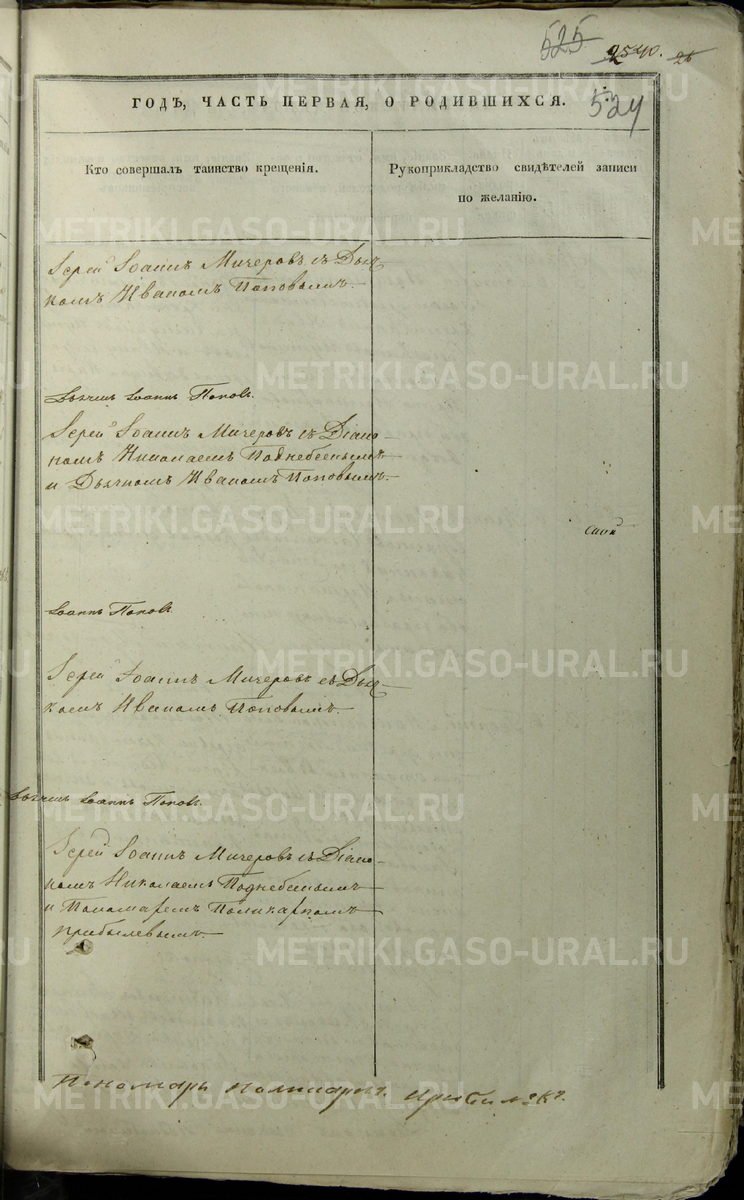 525 2540. 26
ГОДЪ, ЧАСТЬ ПЕРВАЯ, О РОДИВШИХСЯ.
524
Кто совершалъ таинство крещенія.
Рукоприкладство свидѣтелей записи
по желанію.
Іерей Іоаннъ Мичеровъ съ Дьяч-
комъ Иваномъ Поповымъ.
Дьячекъ Іоаннъ Поповъ.
Іерей Іоаннъ Мичеровъ съ Діако-
номъ Николаемъ Поднебеснымъ
и Дьячкомъ Иваномъ Поповымъ.
Іоаннъ Поповъ
Іерей Іоаннъ Мичеровъ съ Дьяч-
комъ Иваномъ Поповымъ.
Дьячекъ Іоаннъ Поповъ.
Іерей Іоаннъ Мичеровъ съ Діако-
номъ Николаемъ Поднебеснымъ
и Пономаремъ Поликарпомъ
Прибылевымъ.
Пономарь Поликарпъ Прибылевъ.
METRIKI.GASO-URAL.RU